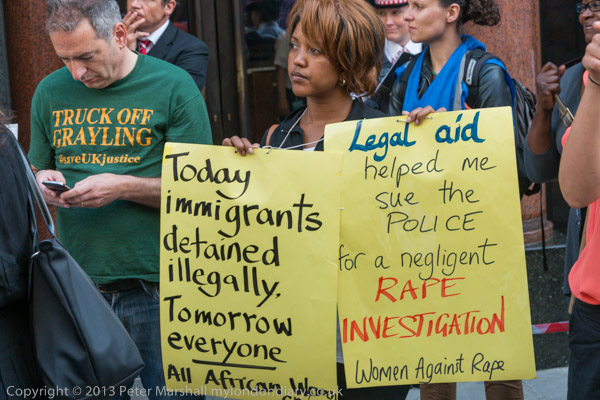 TRUCK OFF
GRAYLING
#saveUKjustice
Today
immigrants
detained
illegally,
Tomorrow
everyone
All African Wo
Legal aid
helped me
sue the
POLICE
for a negligent
RAPE
INVESTIGATION
Women Against Rape
Copyright © 2013 Peter Marshall mylondondiary.co.uk